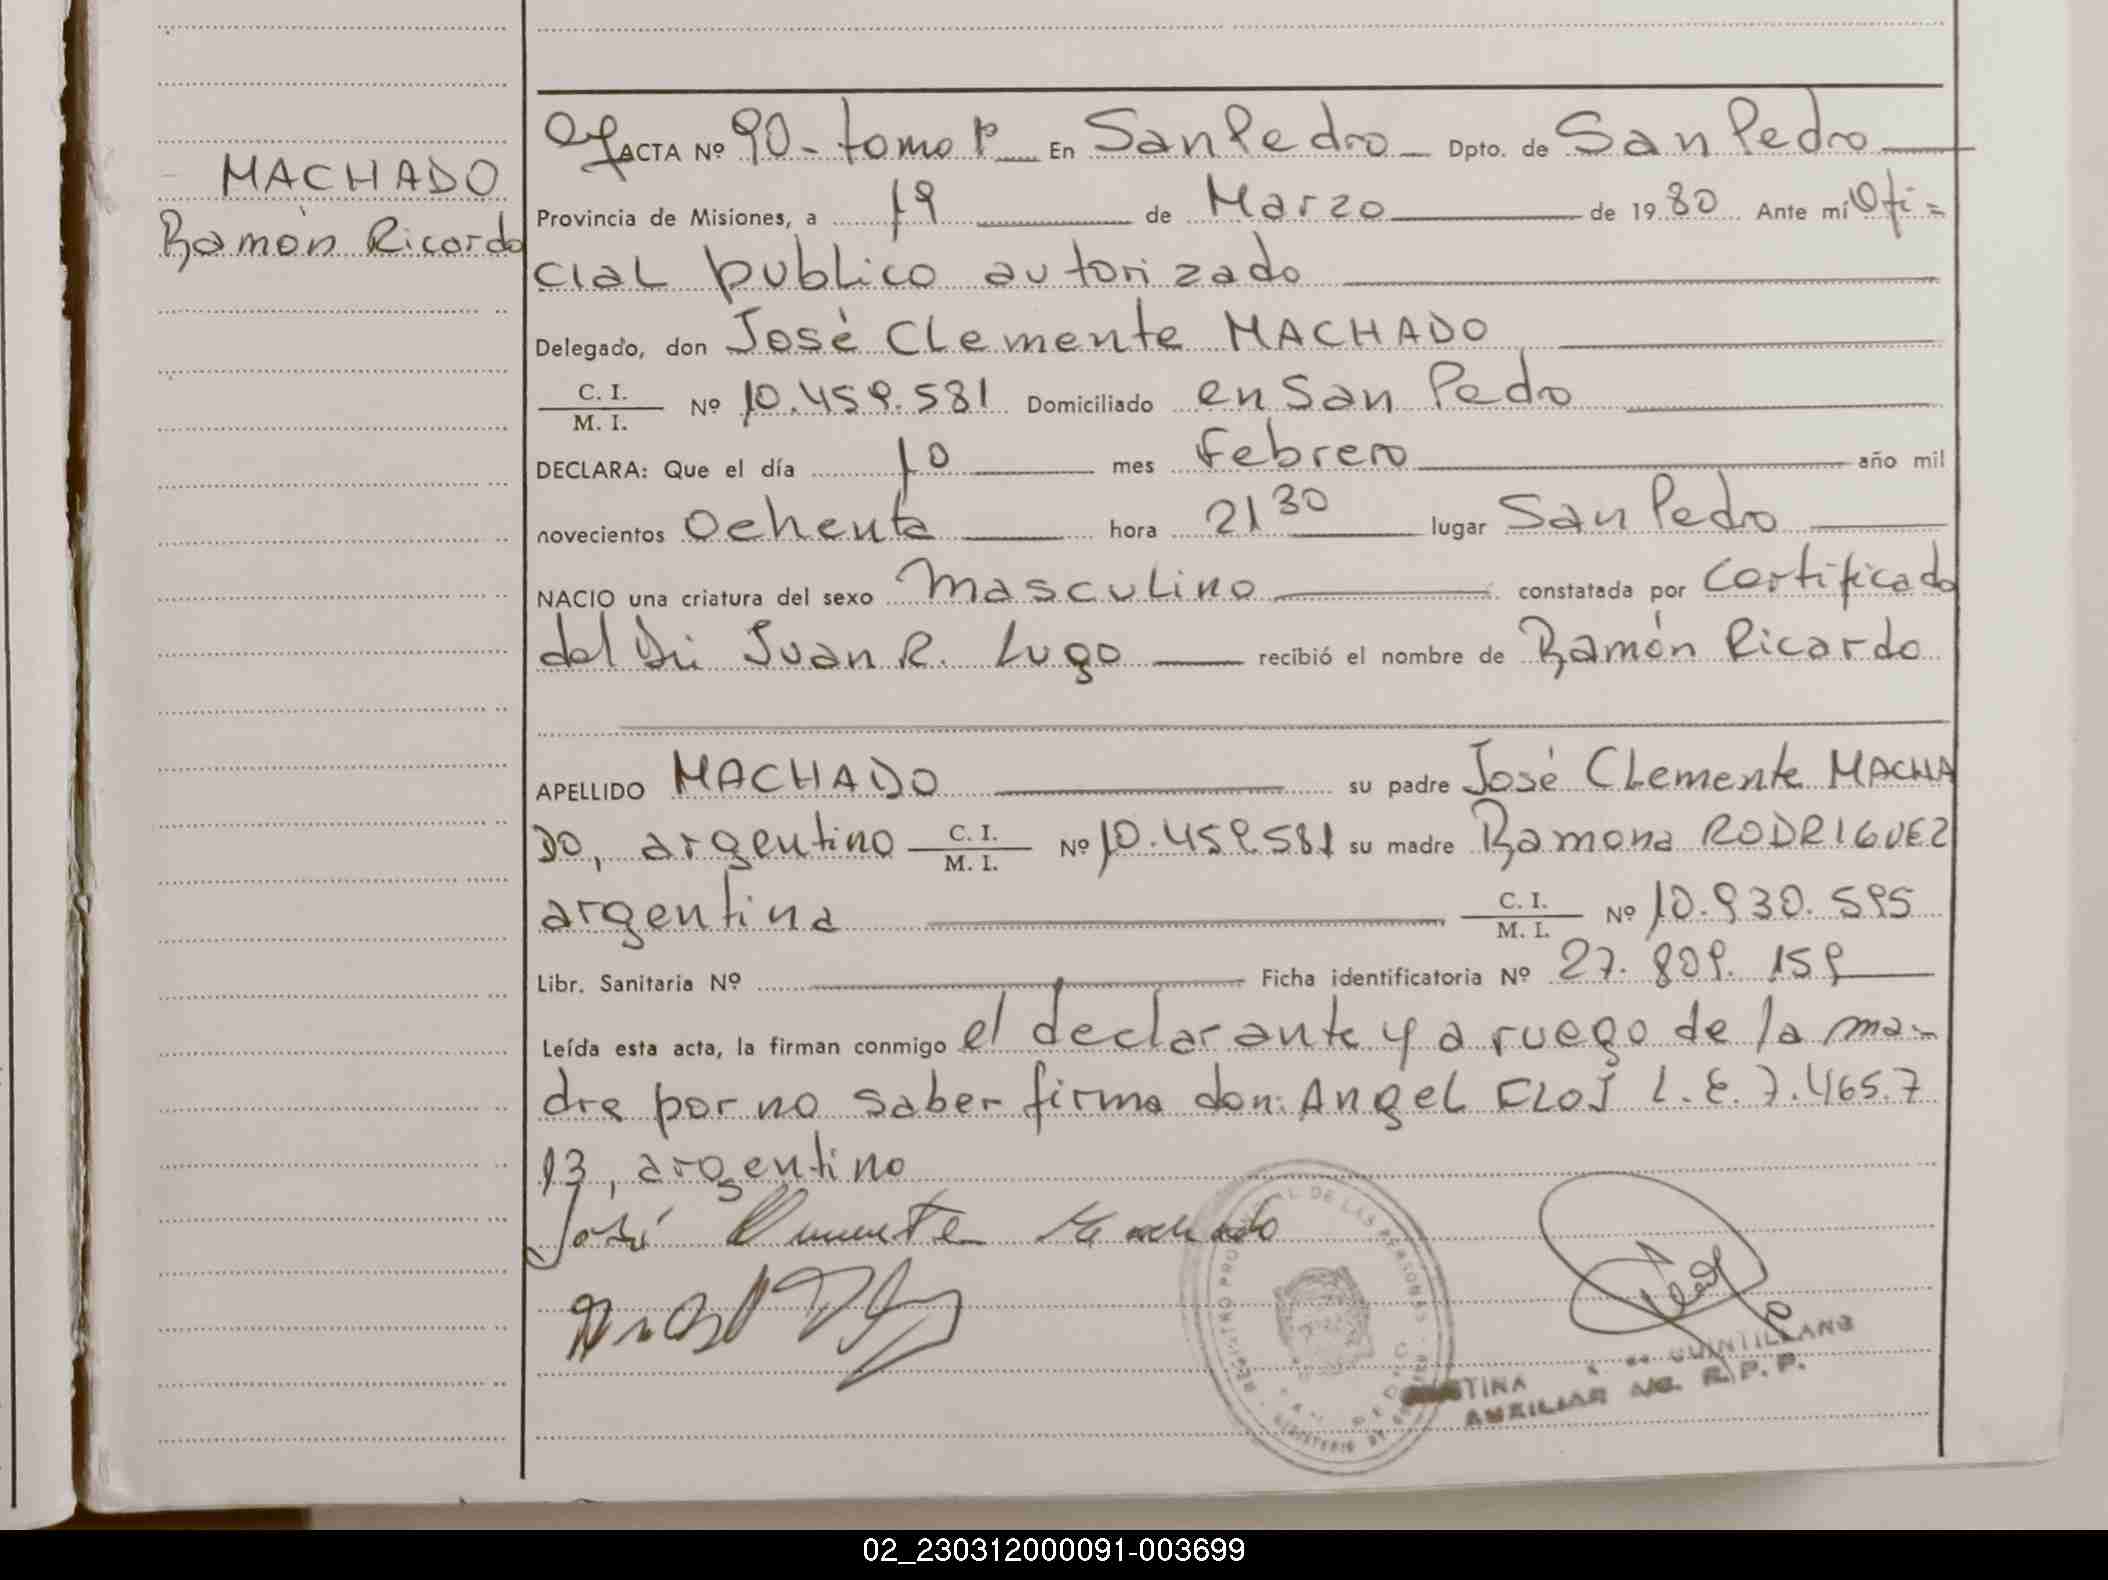 MACHADO
Ramón Ricardo
ACTA Nº 90- tomo 1º En San Pedro Dpto. de San Pedro
Provincia de Misiones, a 19 de Marzo de 1980 Ante mi Ofi=
cial publico autorizado
Delegado, don José Clemente MACHADO
C. I.
M. I. Nº 10.459.581 Domiciliado en San Pedro
DECLARA: Que el día 10 mes Febrero año mil
novecientos Ochenta hora 21 30 lugar San Pedro
NACIO una criatura del sexo masculino constatada por certificado
del Dr. Juan R. Lugo recibió el nombre de Ramón Ricardo
APELLIDO MACHADO su padre José Clemente MACHA
DO, argentino C. I. M. I. Nº 10.459.581 su madre Ramona RODRIGUEZ
argentina C. I. M. I. Nº 10.930.595
Libr. Sanitaria Nº Ficha identificatoria Nº 27.809.159
Leída esta acta, la firman conmigo el declarante y a ruego de la ma-
dre por no saber firma don: Angel FLOJ L.E. 7.465.7
13, argentino
José Clemente Machado
QUINTILLANO
AUXILIAR R.P.P.
02_230312000091-003699